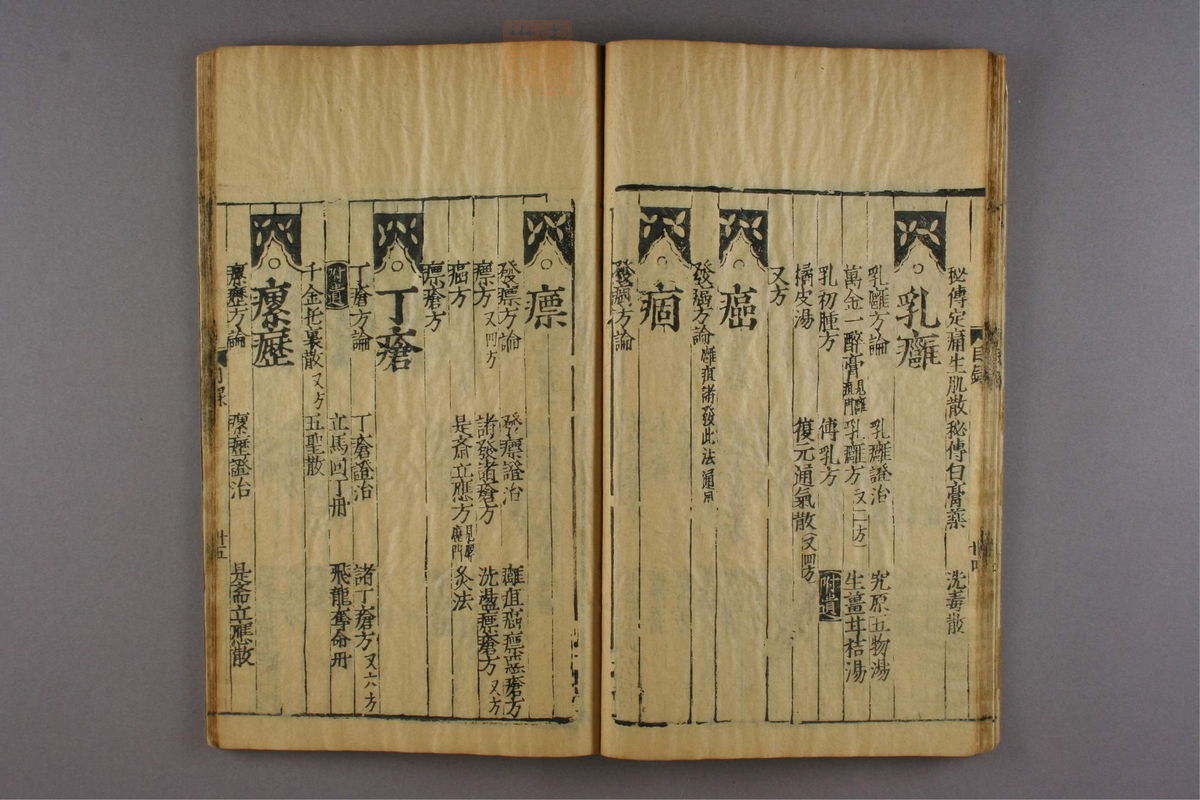 秘傳定痛生肌散 秘傳白膏藥 洗毒散
乳癰
乳癰方論 乳癰證治 究原五物湯
萬金一醉膏見癰疽門 乳癰方又二方 生薑甘桔湯
乳初腫方 傅乳方 附遺
橘皮湯 復元通氣散又四方
又方
癌
發癌方論癰疽諸發此法通用
瘑
發瘑方論
瘭
發瘭方論 發瘭證治 癰疽癌瘭惡瘡方
瘭方又四方 諸發諸瘡方 洗盪瘭瘡方又方
癌方 是齋立應方 灸法
瘭瘡方
丁瘡
丁瘡方論 丁瘡證治 諸丁瘡方又六方
附遺 立馬回丁丹 飛龍奪命丹
千金托裏散又方 五聖散
瘰癧
瘰癧方論 瘰癧證治 是齋立應散
目錄
十四
目錄
十五